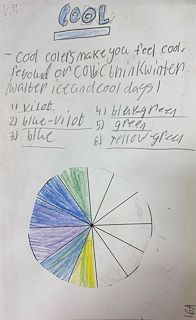 COOL
- Cool colers make you feel cool,
or cold think winten
walter ice and cool days!
1) vilot
2) blue-vilot
3) blue
4) blue green
5) green
6) yellow-green